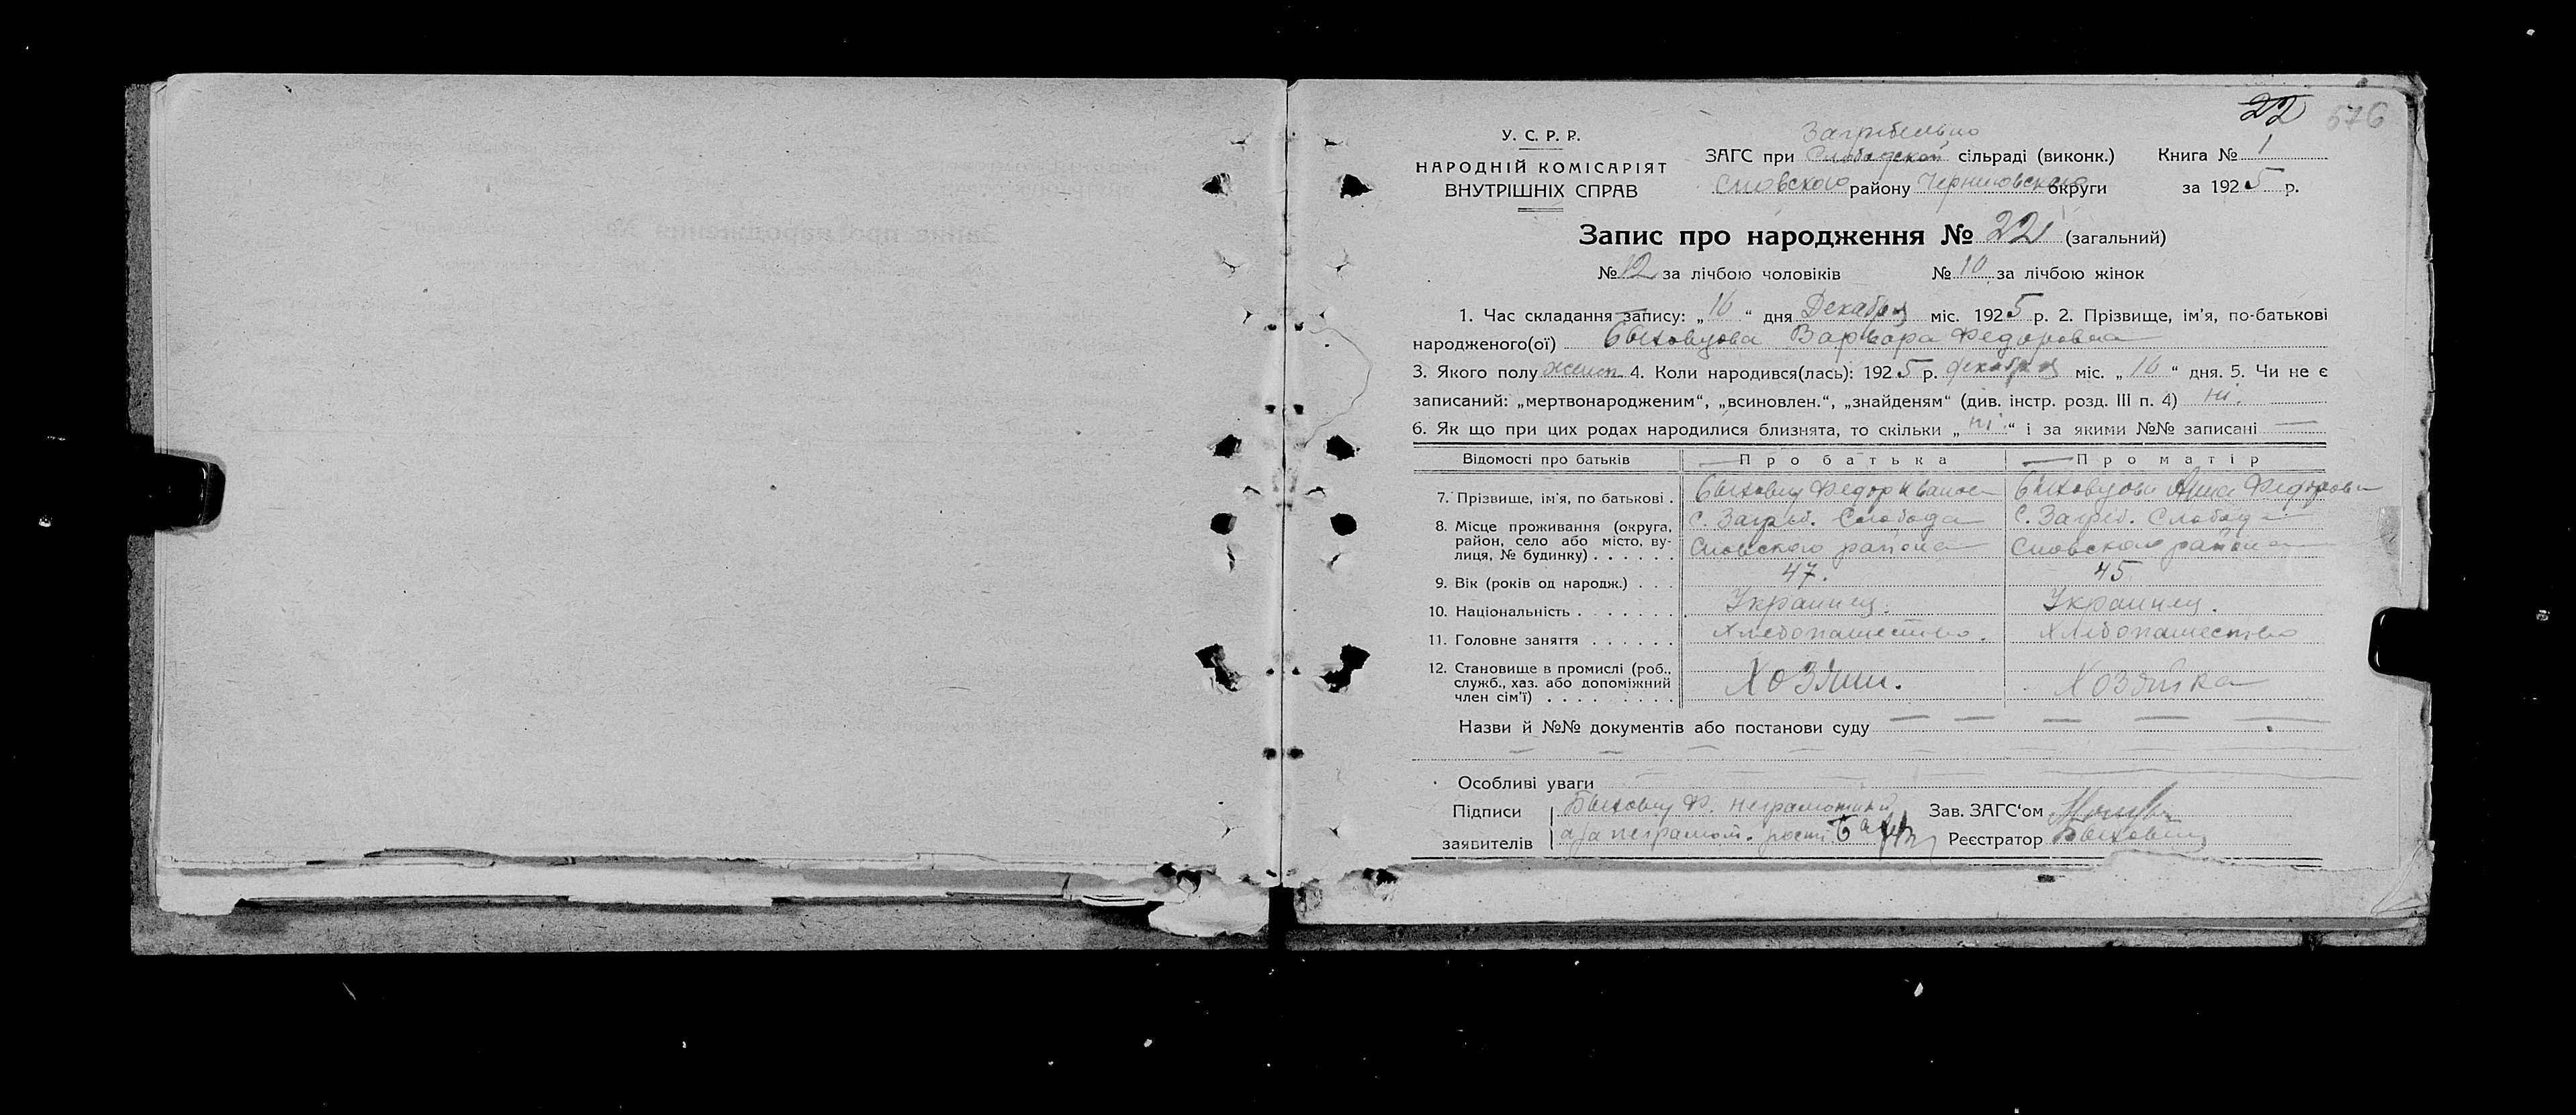 22 576
У. С. Р. Р.
НАРОДНІЙ КОМІСАРІЯТ
ВНУТРІШНІХ СПРАВ
Загребельно
ЗАГС при Слободской сільраді (виконк.) Книга № 1
Сновского району Черниговского округи за 1925 р.
Запис про народження № 22 (загальний)
№ 12 за лічбою чоловіків № 10 за лічбою жінок
1. Час складання запису: „16“ дня Декабря міс. 1925 р. 2. Прізвище, ім'я, по-батькові
народженого(ої) Быховцова Варвара Федоровна
3. Якого полу женск. 4. Коли народився(лась): 1925 р. декабря міс. „16“ дня. 5. Чи не є
записаний: „мертвонародженим“, „всиновлен.“, „знайденям“ (див. інстр. розд. III п. 4) ні.
6. Як що при цих родах народилися близнята, то скільки „ні“ і за якими №№ записані —
Відомості про батьків Про батька Про матір
7. Прізвище, ім'я, по батькові . Быховец Федор Иванов Быховцова Анна Федоровн
8. Місце проживання (округа, район, село або місто, вулиця, № будинку) . . . . . . с. Загреб. Слобода Сновского района с. Загреб. Слобода Сновского района
9. Вік (років од народж.) . . . 47. 45
10. Національність . . . . . . . Украинец. Украинец.
11. Головне заняття . . . . . . Хлебопашество. Хлебопашество
12. Становище в промислі (роб., служб., хаз. або допоміжний член сім'ї) . . . . . . . . Хозяин. Хозяйка
Назви й №№ документів або постанови суду — — — — —
Особливі уваги
Підписи Быховец Ф. неграмотний Зав. ЗАГС‘ом
заявителів неграмот. Реєстратор Быховец